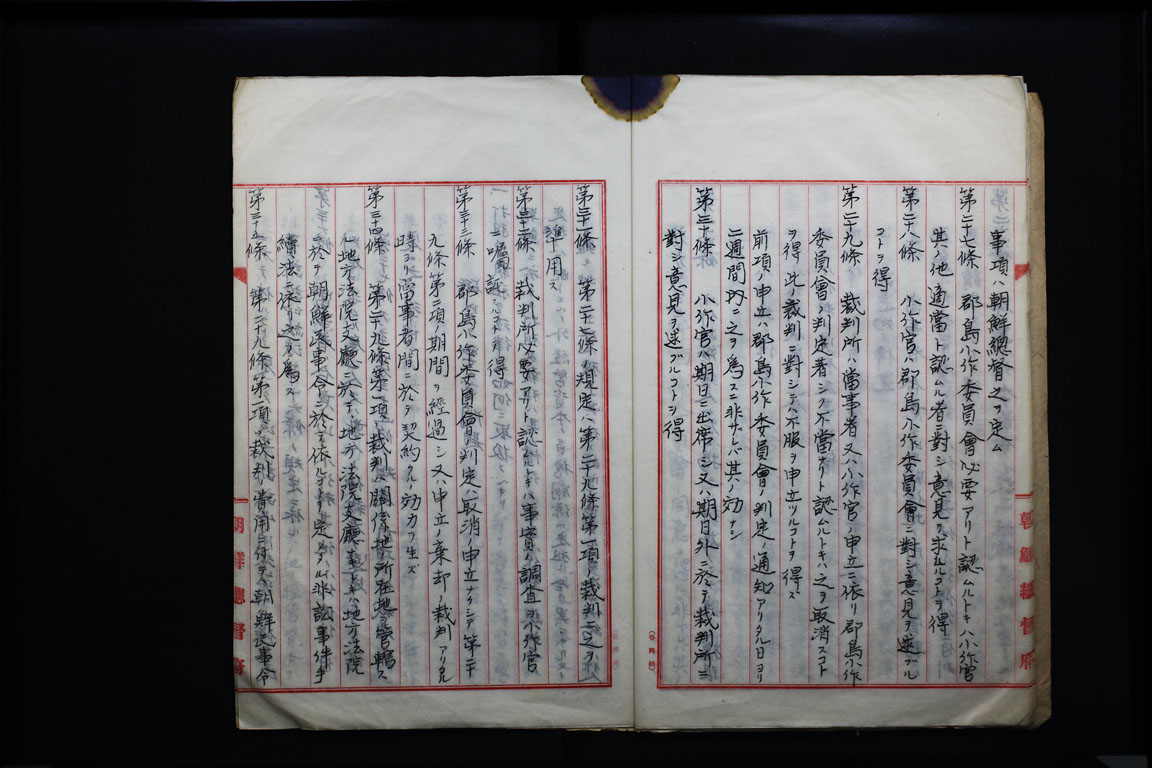 事項ハ朝鮮總督之ヲ定ム
第二十七條 郡島小作委員會必要アリト認ムルトキハ小作官
其ノ他適當ト認ムル者ニ對シ意見ヲ求ムルコトヲ得
第二十八條 小作官ハ郡島小作委員會ニ對シ意見ヲ述ブル
コトヲ得
第二十九條 裁判所ハ當事者又ハ小作官ノ申立ニ依リ郡島小作
委員會ノ判定著シク不當ナリト認ムルトキハ之ヲ取消スコト
ヲ得此ノ裁判ニ對シテハ不服ヲ申立ツルコトヲ得ズ
前項ノ申立ハ郡島小作委員會ノ判定ノ通知アリタル日ヨリ
二週間内ニ之ヲ爲スニ非ザレバ其ノ効ナシ
第三十條 小作官ハ期日ニ出席シ又ハ期日外ニ於テ裁判所ニ
對シ意見ヲ述ブルコトヲ得
朝鮮總督府
第三十一條 第二十七條ノ規定ハ第二十九條第一項ノ裁判ニ之ヲ
準用ス
第三十二條 裁判所必要アリト認ムルトキハ事實ノ調査ヲ小作官
ニ囑託スルコトヲ得
第三十三條 郡島小作委員會ノ判定ハ取消ノ申立ナクシテ第二十
九條第二項ノ期間ヲ經過シ又ハ申立ノ棄却ノ裁判アリタル
時ヨリ當事者間ニ於テ契約タル効力ヲ生ズ
第三十四條 第二十九條第一項ノ裁判ハ關係地ノ所在地ヲ管轄ス
ル地方法院支廳ニ於テ、地方法院支廳ナキトキハ地方法院
ニ於テ朝鮮民事令ニ於テ依ルコトヲ定メタル非訟事件手
續法ニ依リ之ヲ爲ス
第三十五條 第二十九條第一項ノ裁判ノ費用ニ付テハ朝鮮民事令
朝鮮總督府